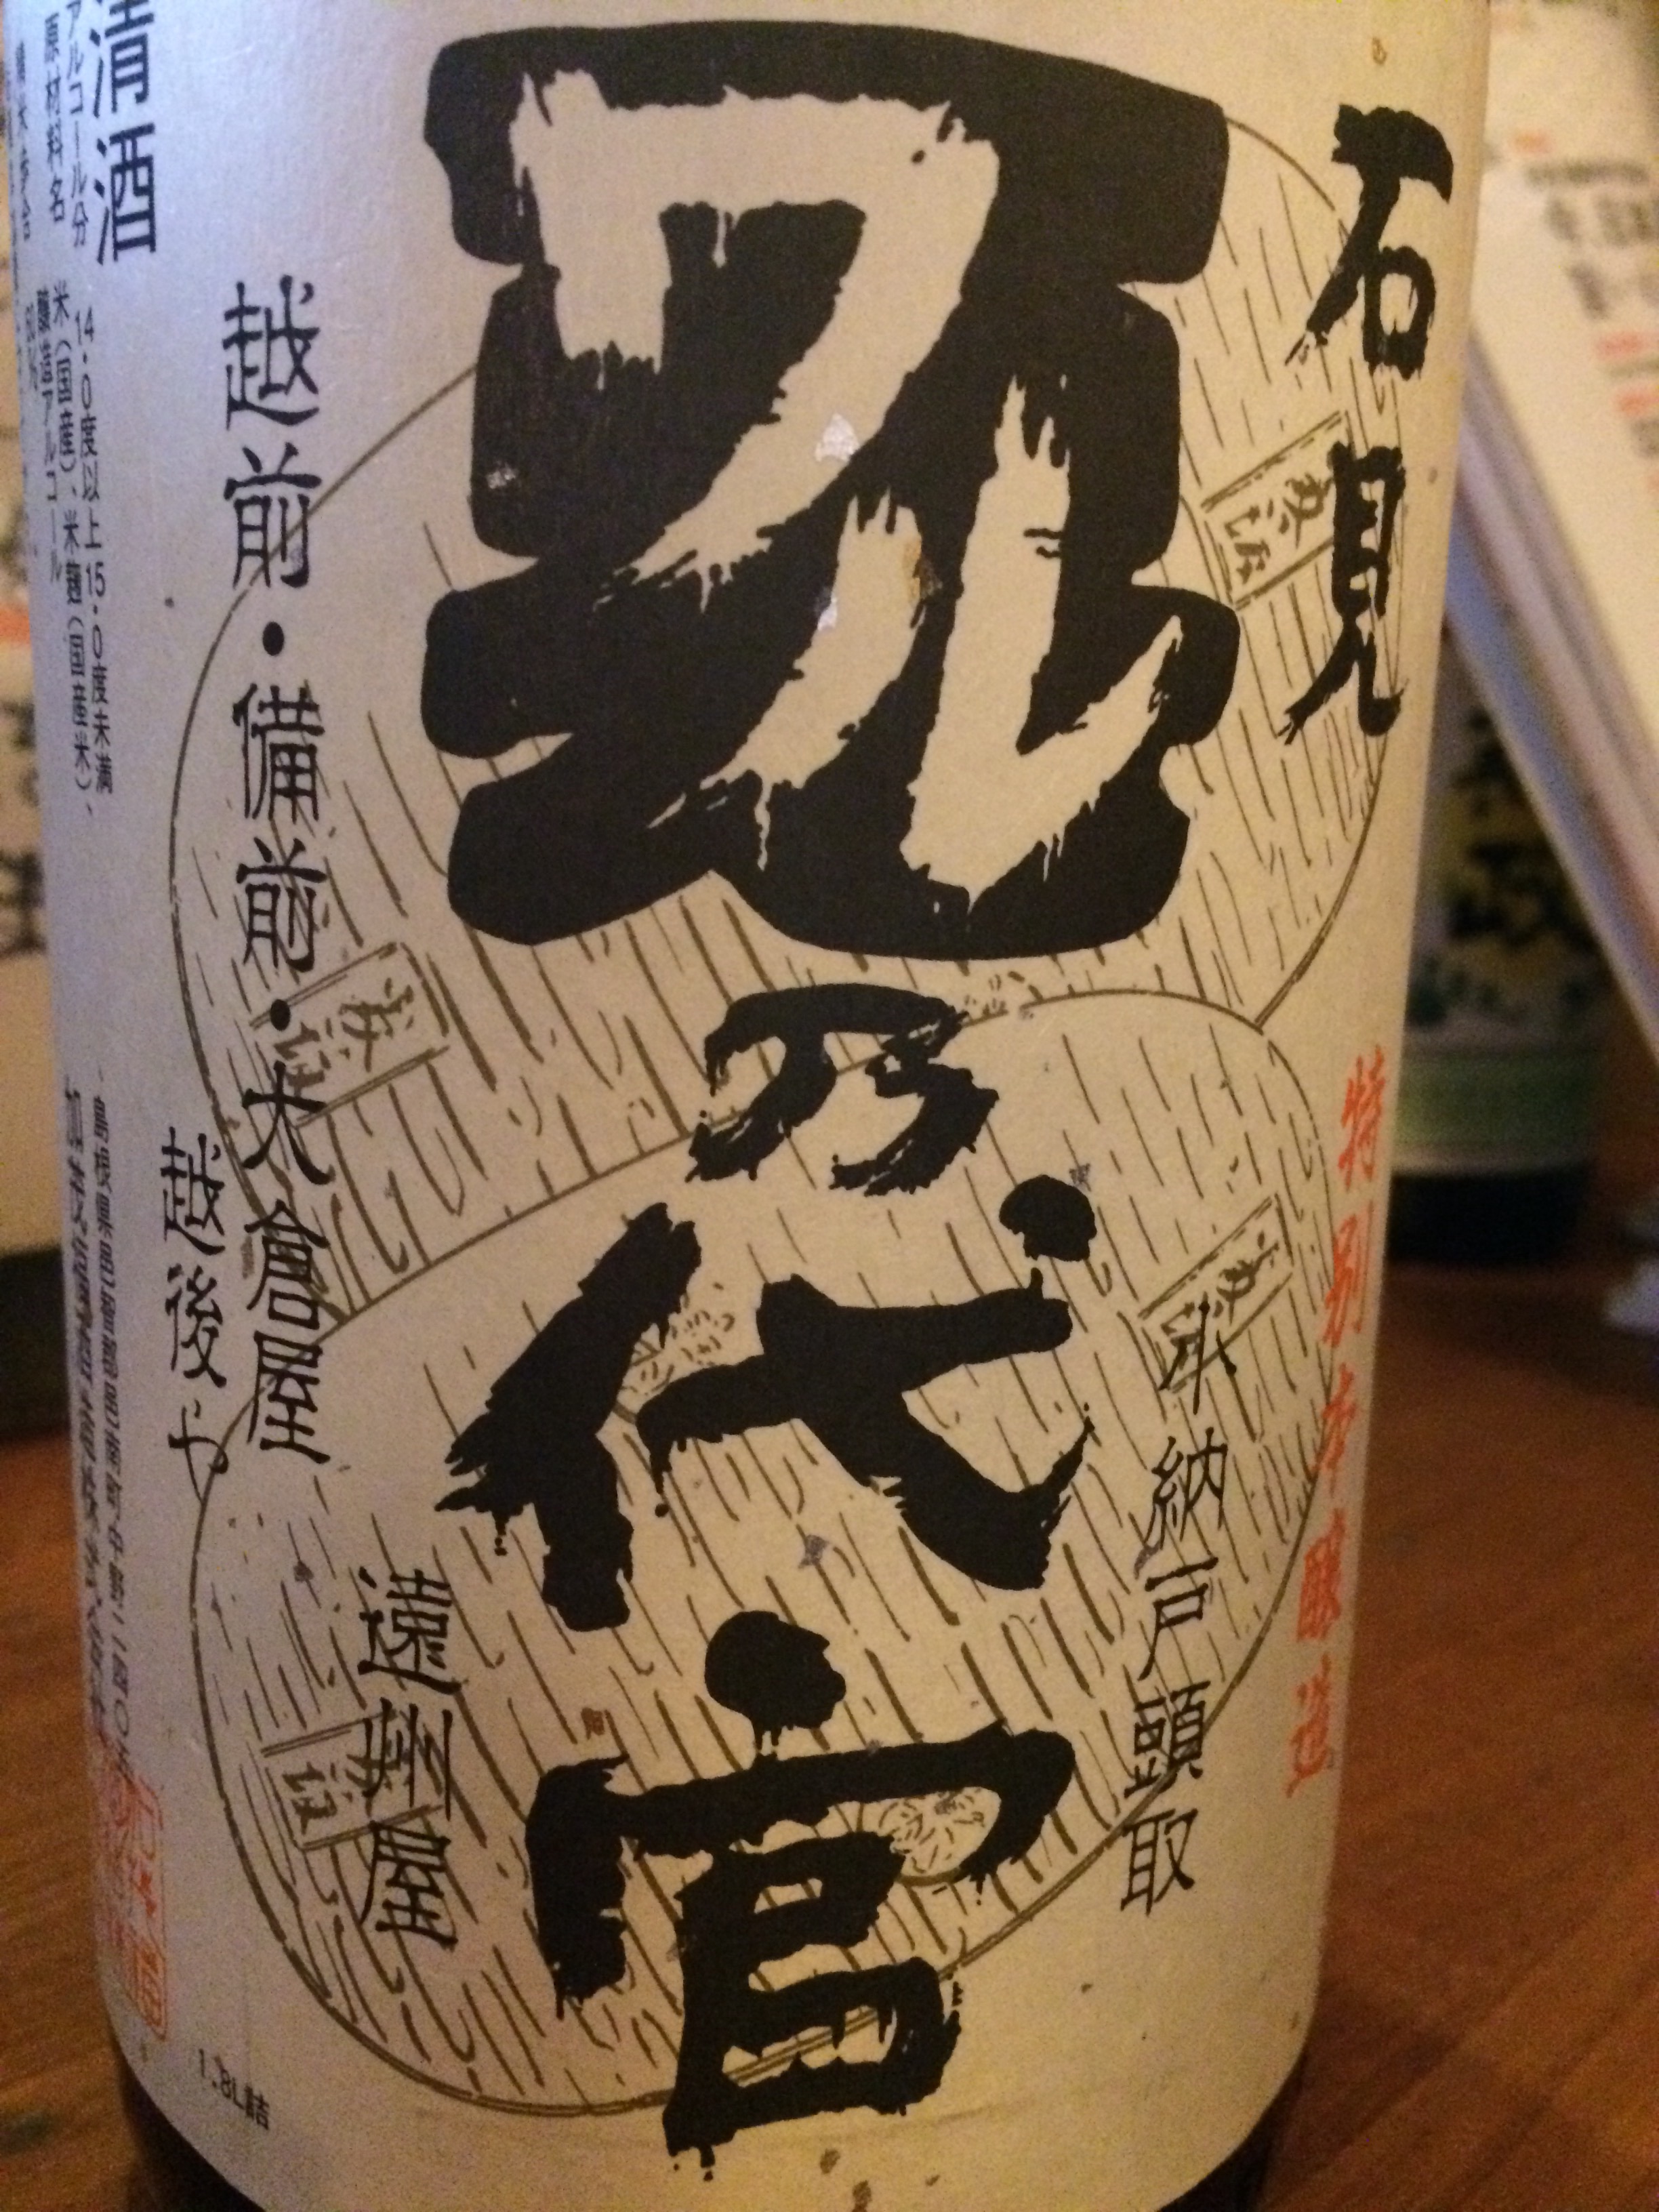 石見
特別本醸造
小納戸頭取
ワル
乃代官
遠州屋
越前・備前・大倉屋
越後や
清酒
アルコール分 14.0度以上15.0度未満
原材料名 米(国産)、米麹(国産米)、
醸造アルコール
精米歩合
島根県邑智郡邑南町中野
1.8L詰